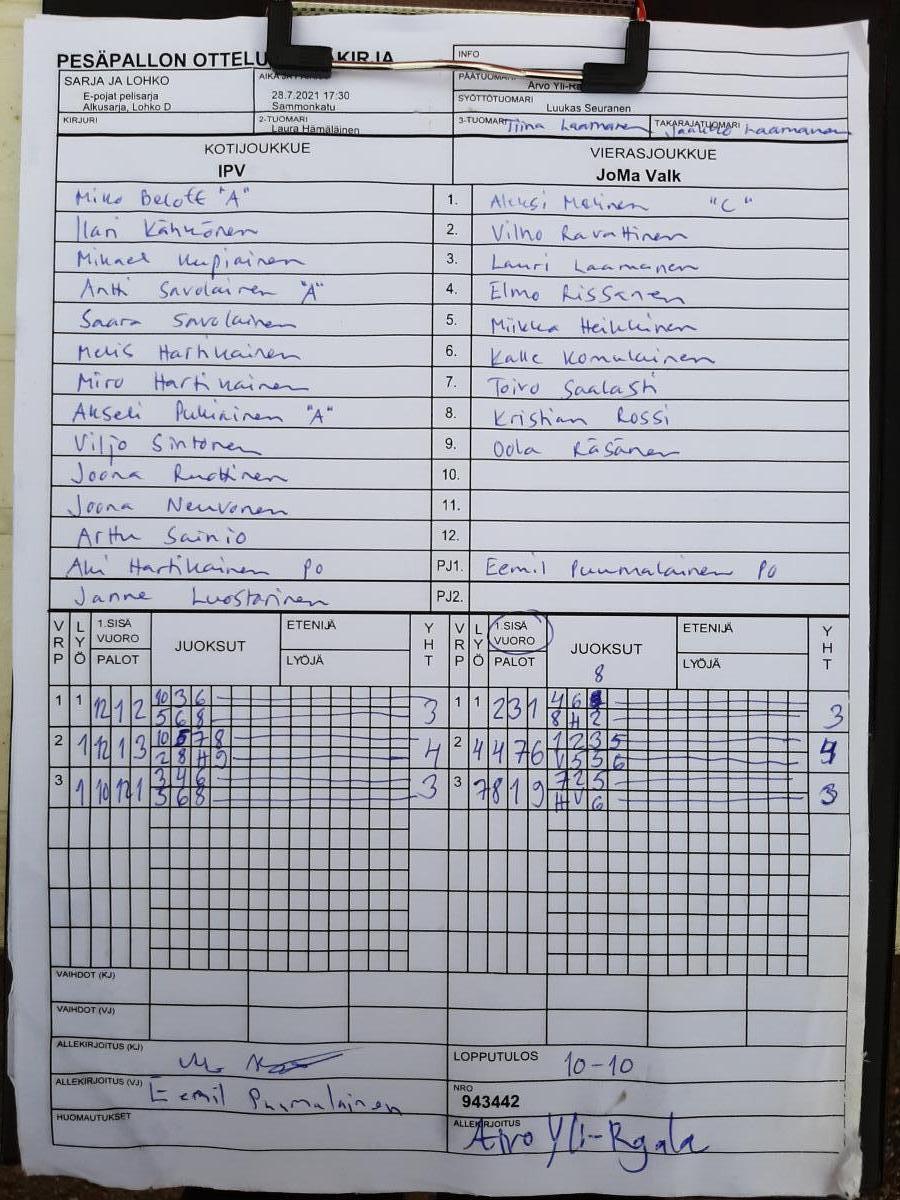 PESÄPALLON OTTELU KIRJA
INFO
SARJA JA LOHKO
E-pojat pelisarja
Alkusarja, Lohko D
28.7.2021 17:30
Sammonkatu
PÄÄTUOMARI
Arvo Yli-Ra
SYÖTTÖTUOMARI
Luukas Seuranen
KIRJURI
2-TUOMARI
Laura Hämäläinen
3-TUOMARI
Tiina Laamanen
TAKARAJATUOMARI
Jaakko Laamanen
KOTIJOUKKUE
IPV
VIERASJOUKKUE
JoMa Valk
"A" 1. Aleksi "C"
Ilari Kähkönen 2. Vilho Ravattinen
Mikael Kupiainen 3. Lauri Laamanen
Antti Savolainen "A" 4. Elmo Rissanen
Saara Savolainen 5. Miikka Heikkinen
Hartikainen 6. Kalle Komulainen
Miro Hartikainen 7. Toivo Saalasti
Akseli Pukiainen "A" 8. Kristian Rossi
Viljo Sintonen 9. Oola Räsänen
Joona Ruottinen 10.
Joona Neuvonen 11.
Arttu Sainio 12.
Aki Hartikainen PO PJ1. Eemil Puumalainen PO
Janne Luostarinen PJ2.
VRP LYÖ 1.SISÄ VUORO PALOT JUOKSUT ETENIJÄ LYÖJÄ YHT VRP LYÖ 1.SISÄ VUORO PALOT JUOKSUT ETENIJÄ LYÖJÄ YHT
8
1 1 12 1 2 10 3 6 3 1 1 2 3 1 4 6 3
5 6 8 8 H 2
2 1 12 1 3 10 5 7 8 4 2 4 4 7 6 1 2 3 5 4
2 8 H 9 V 5 5 6
3 1 10 12 1 3 4 6 3 3 7 8 1 9 7 2 5 3
5 6 8 H V 6
VAIHDOT (KJ)
VAIHDOT (VJ)
ALLEKIRJOITUS (KJ)
LOPPUTULOS 10-10
ALLEKIRJOITUS (VJ) Eemil Puumalainen
NRO
943442
HUOMAUTUKSET
ALLEKIRJOITUS
Arvo Yli-Rajala